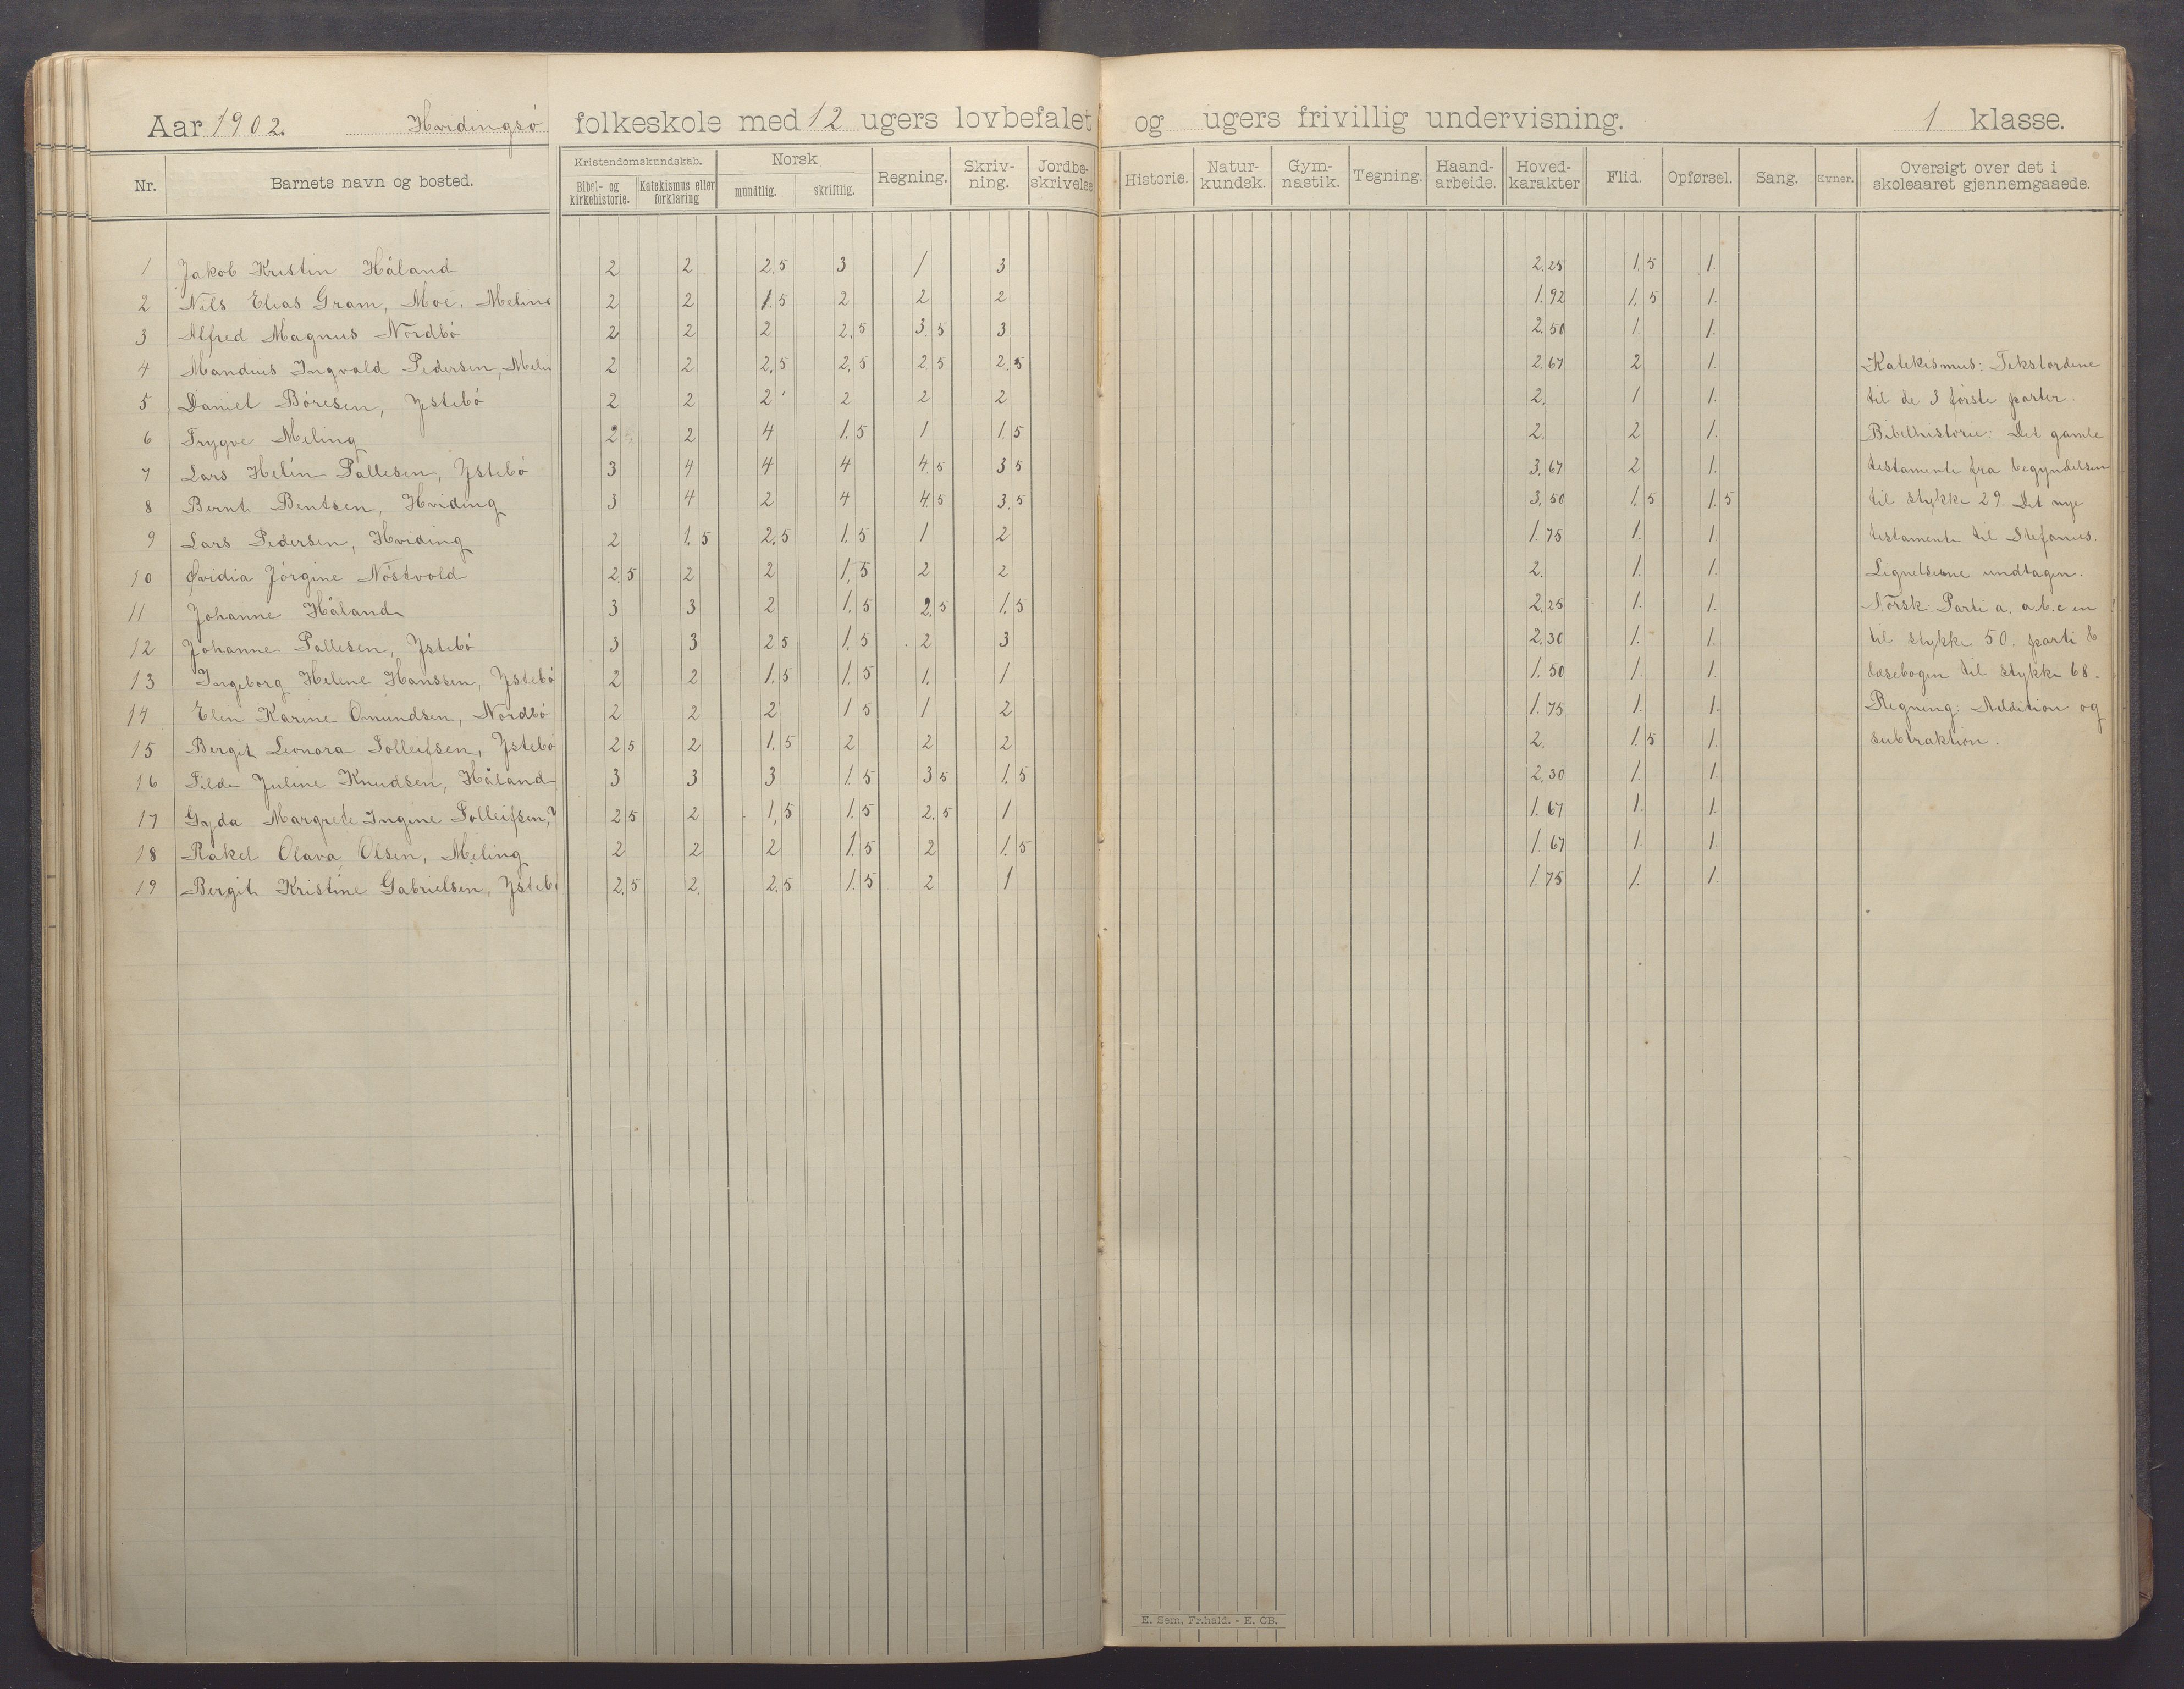 Aar 1902. Hvidingsö folkeskole med 12 ugers lovbefalet og ugers frivillig undervisning. 1 klasse.
Nr. Barnets navn og bosted. Kristendomskundskab. Bibel- og kirkehistorie. Katekismus eller forklaring Norsk mundtlig. skriftlig. Regning. Skriv-ning. Jordbe-skrivelse Historie. Natur-kundsk. Gym-nastik. Tegning. Haand-arbeide. Hoved-karakter Flid. Opførsel. Sang. Evner. Oversigt over det i skoleaaret gjennemgaaede.
1 Jakob Kristin Håland 2 2 2.5 3 1 3 2.25 1.5 1.
2 Nils Elias Gram, Moe, Meling 2 2 1.5 2 2 2 1.92 1.5 1.
3 Alfred Magnus Nordbö 2 2 2 2.5 3.5 3 2.50 1. 1.
4 Mandius Ingvald Pedersen, Melin 2 2 2.5 2.5 2.5 2.5 2.67 2 1. Katekismus: Tekstordene
5 Daniel Böresen, Ystebö 2 2 2 2 2 2 2. 1 1. til de 3 förste parter.
6 Trygve Meling 2 2 4 1.5 1 1.5 2. 2 1. Bibelhistorie: Det gamle
7 Lars Helin Pallesen, Ystebö 3 4 4 4 4.5 3 5 3.67 2 1. testamente fra begyndelsen
8 Bernt Bentsen, Hviding 3 4 2 4 4.5 3.5 3.50 1.5 1.5 til stykke 29. Det nye
9 Lars Pedersen, Hviding 2 1.5 2.5 1.5 1 2 1.75 1. 1. testamente til Stefanus.
10 Ovidia Jörgine Nöstvold 2.5 2 2 1.5 2 2 2. 1. 1. Lignelserne undtagen.
11 Johanne Håland 3 3 2 1.5 2.5 1.5 2.25 1. 1. Norsk: Parti a. a.b.c en
12 Johanne Pallesen, Ystebö 3 3 2 5 1.5 2 3 2.30 1. 1. til stykke 50. parti b
13 Ingeborg Helene Hanssen, Ystebö 2 2 1.5 1.5 1. 1 1.50 1. 1 læsebogen til stykke 68.
14 Elen Karine Omundsen, Nordbö 2 2 2 1 5 1 2 1.75 1. 1. Regning: Addition og
15 Bergit Leonora Tolleifsen, Ystebö 2 5 2 1.5 2 2 2 2. 1.5 1. subtraktion.
16 Tilde Juline Knudsen, Håland 3 3 3 1.5 3 5 1.5 2.30 1. 1.
17 Gyda Margrete Ingine Tolleifsen, Y 2 5 2 1,5 1.5 2.5 1 1.67 1. 1.
18 Rakel Olava Olsen, Meling 2 2 2 1.5 2 1.5 1.67 1. 1.
19 Bergit Kristine Gabrielsen, Ysteb 2.5 2. 2.5 1.5 2 1 1 75 1. 1.
E. Sem, Fr.hald. - E. CB.